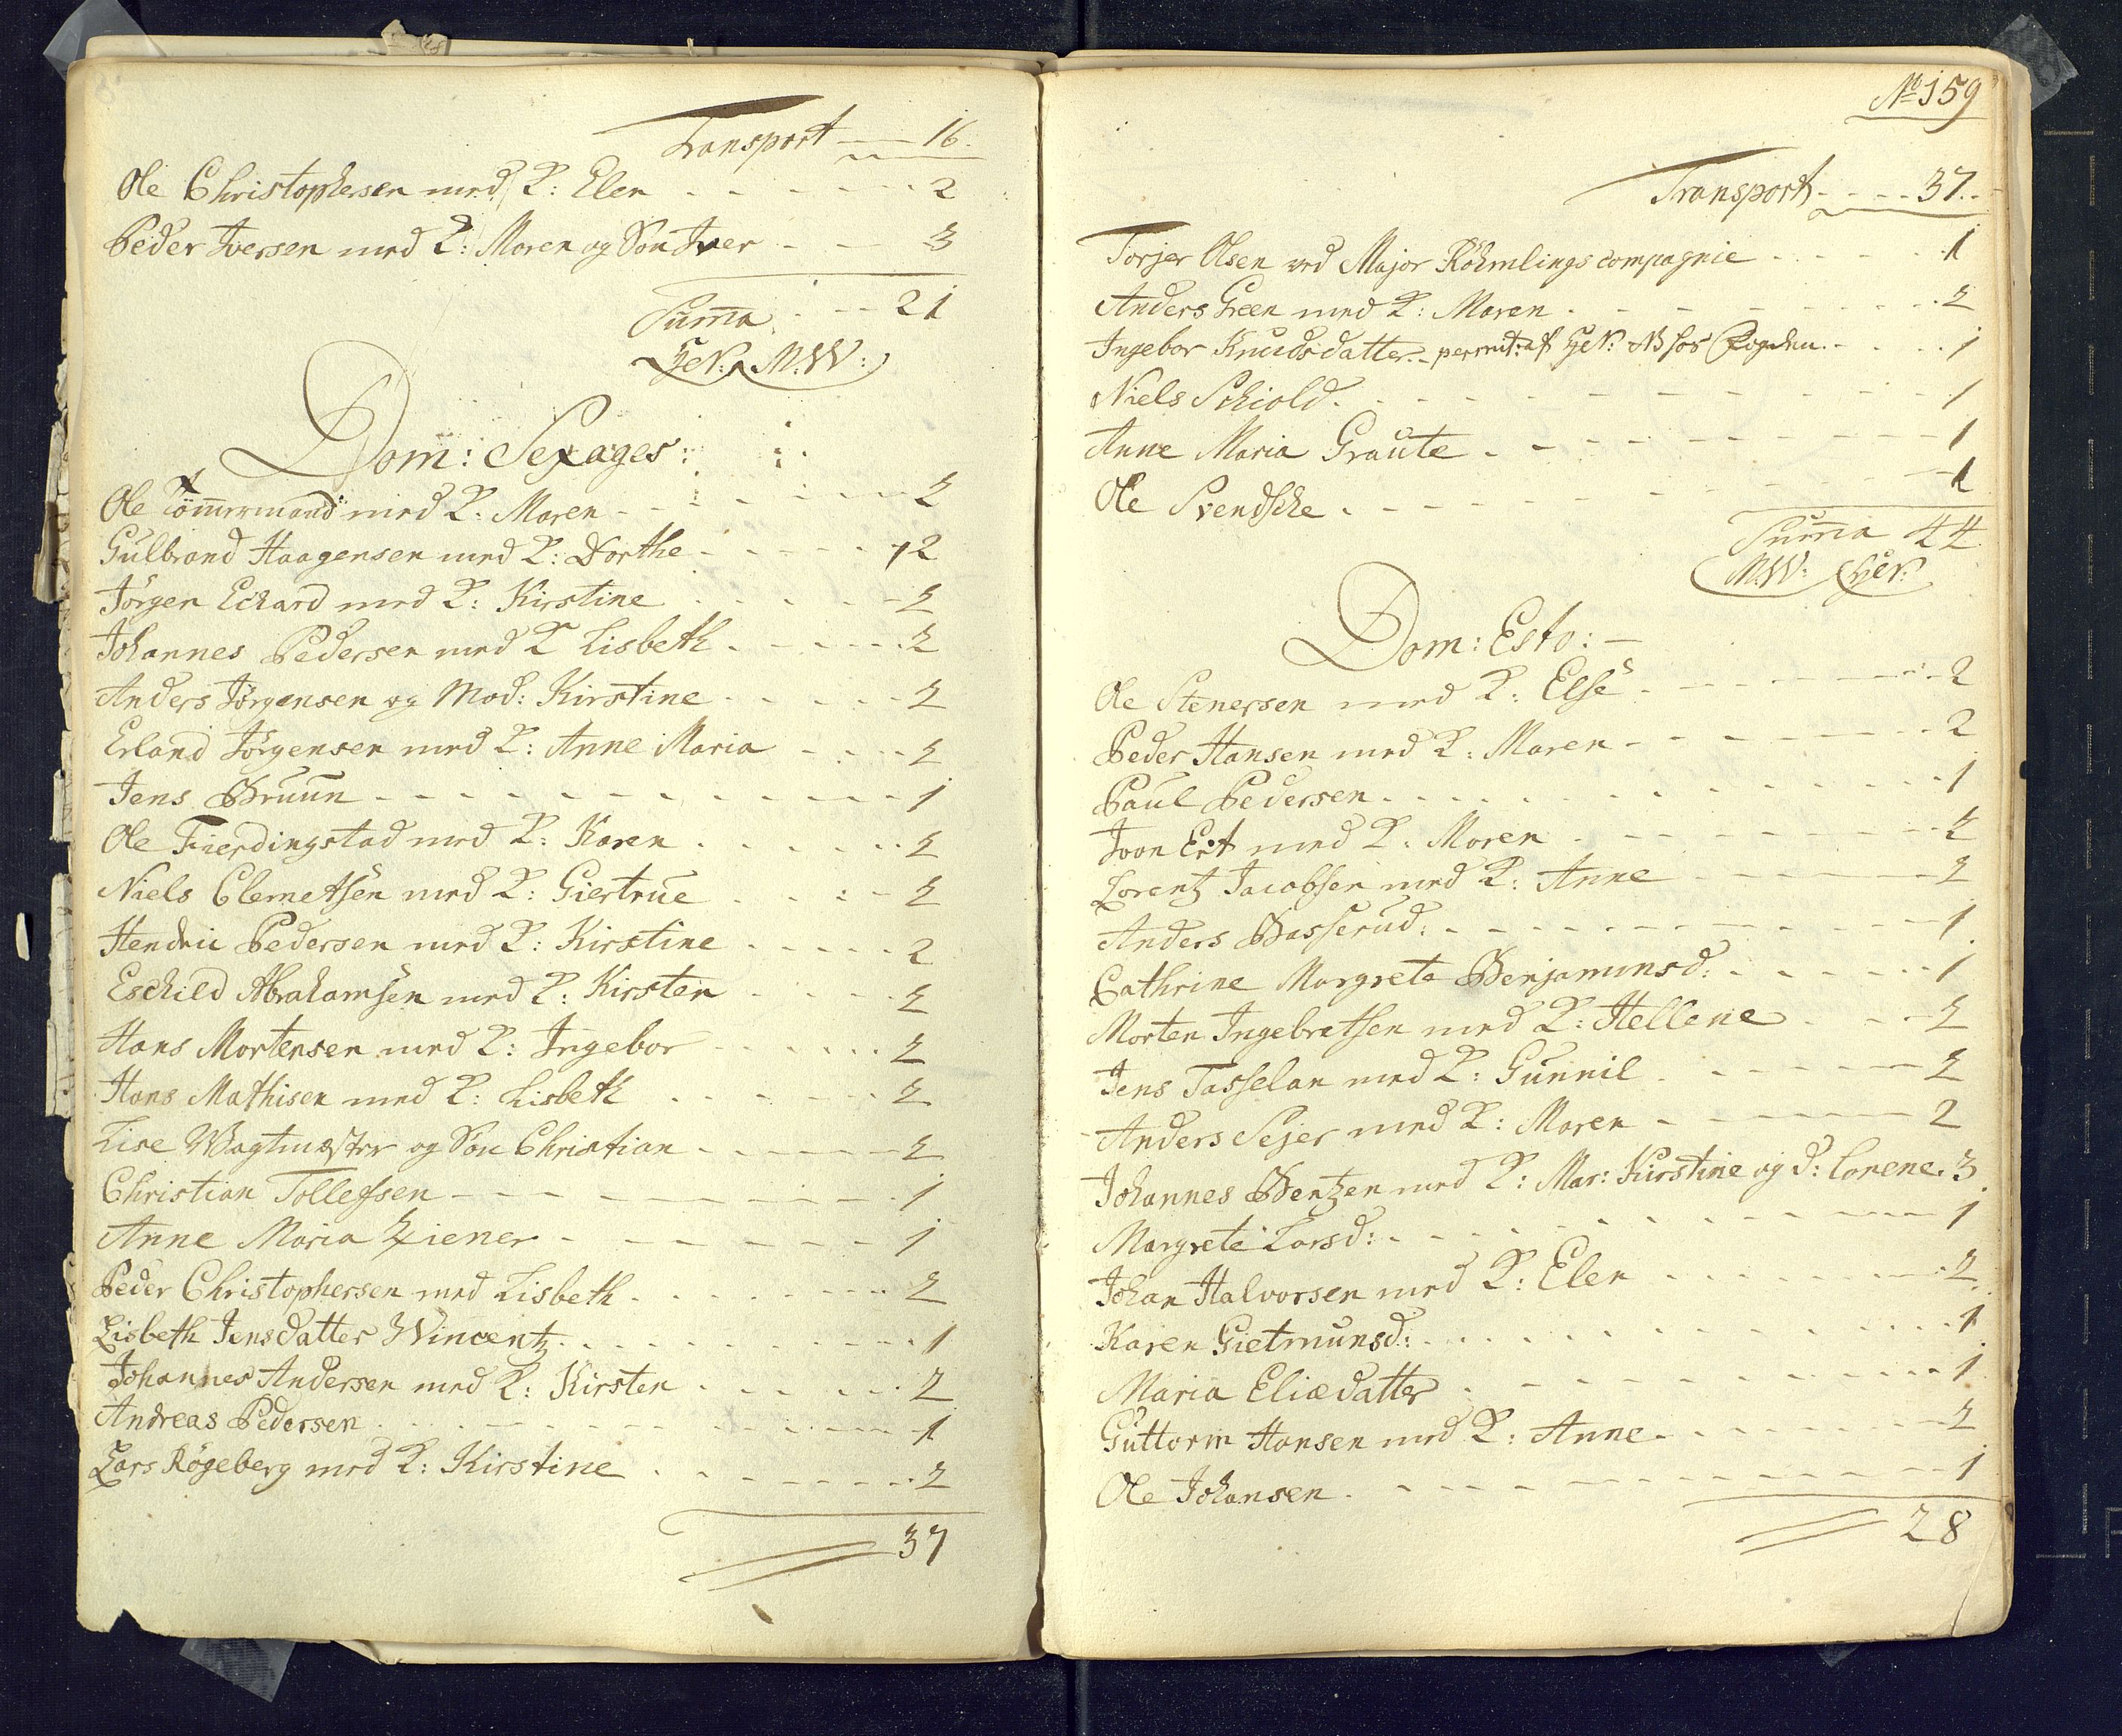 Transport — 16.
Ole Christophersen med K: Elen - - - - - - 2
Peder Iversen med K: Maren og Søn Iver - - - 3
Summa - - - 21
HeN: M.W:
Dom: Sexages:
Ole Tömmermand med K: Maren - - - - - - 2
Gulbrand Haagensen med K: Dorthe - - - - - 2
Jörgen Eckard med K: Kirstine - - - - - 2
Johannes Pedersen med K Lisbeth - - - - - 2
Anders Jörgensen og Mod: Kirstine - - - - - 2
Erland Jörgensen med K: Anne Maria - - - - 2
Jens Bruun - - - - - - - - - - 1
Ole Fierdingstad med K: Karen - - - - - - 2
Niels Clemetsen med K: Giertrue - - - - 2
Hendric Pedersen med K: Kirstine - - - - - 2
Eschild Abrahamsen med K: Kirsten - - - - 2
Hans Mortensen med K: Ingebor - - - - - - 2
Hans Mathisen med K: Lisbeth - - - - - - 2
Lise Wagtmæster og Søn Christian - - - - - 2
Christian Tollefsen - - - - - - - - - 1
Anne Maria Ziener - - - - - - - 1
Peder Christophersen med Lisbeth - - - - - - - 2
Lisbeth Jensdatter Wincentz - - - - - - - - 1
Johannes Andersen med K: Kirsten - - - - - - 2
Andreas Pedersen - - - - - - - - - - 1
Lars Rögeberg med K: Kirstine - - - - - - - 2
37
No 159
Transport - - - - 37. -
Torjer Olsen ved Major Röhmlings compagnie - - - - - 1
Anders Green med K: Maren - - - - - - - - 2
Ingebor Knudsdatter - permit: af HeN: NB hos Fogden - - - - 1
Niels Schiold - - - - - - - - - - 1
Anne Maria Graute - - - - - - - - - - 1
Ole Svendske - - - - - - - - 1
Summa 44
M.W: HeN:
Dom: Esto: -
Ole Stenersen med K: Else - - - - - - - - 2
Peder Hansen med K: Maren - - - - - - - - 2
Paul Pedersen - - - - - - - - - - - 1
Joon Ert med K: Maren - - - - - - - - 2
Lorentz Jacobsen med K: Anne - - - - - - 2
Anders Basserud: - - - - - - - - - - - 1
Cathrine Margreta Benjaminsd: - - - - - - 1
Morten Ingebretsen med K: Hellene - - - 2
Jens Tasselan med K: Gunnil - - - - - - 2
Anders Sejer med K: Maren - - - - - - 2
Johannes Bentzen med K: Mar: Kirstine og d: Lorene. 3
Margrete Larsd: - - - - - - - - - - 1
Johan Halvorsen med K: Elen - - - - - - - 2
Karen Gietmunsd: - - - - - - - - - - - 1
Maria Eliædatter - - - - - - - - - - 1
Guttorm Hansen med K: Anne - - - - - - - 2
Ole Johansen - - - - - - - - - - - 1
28